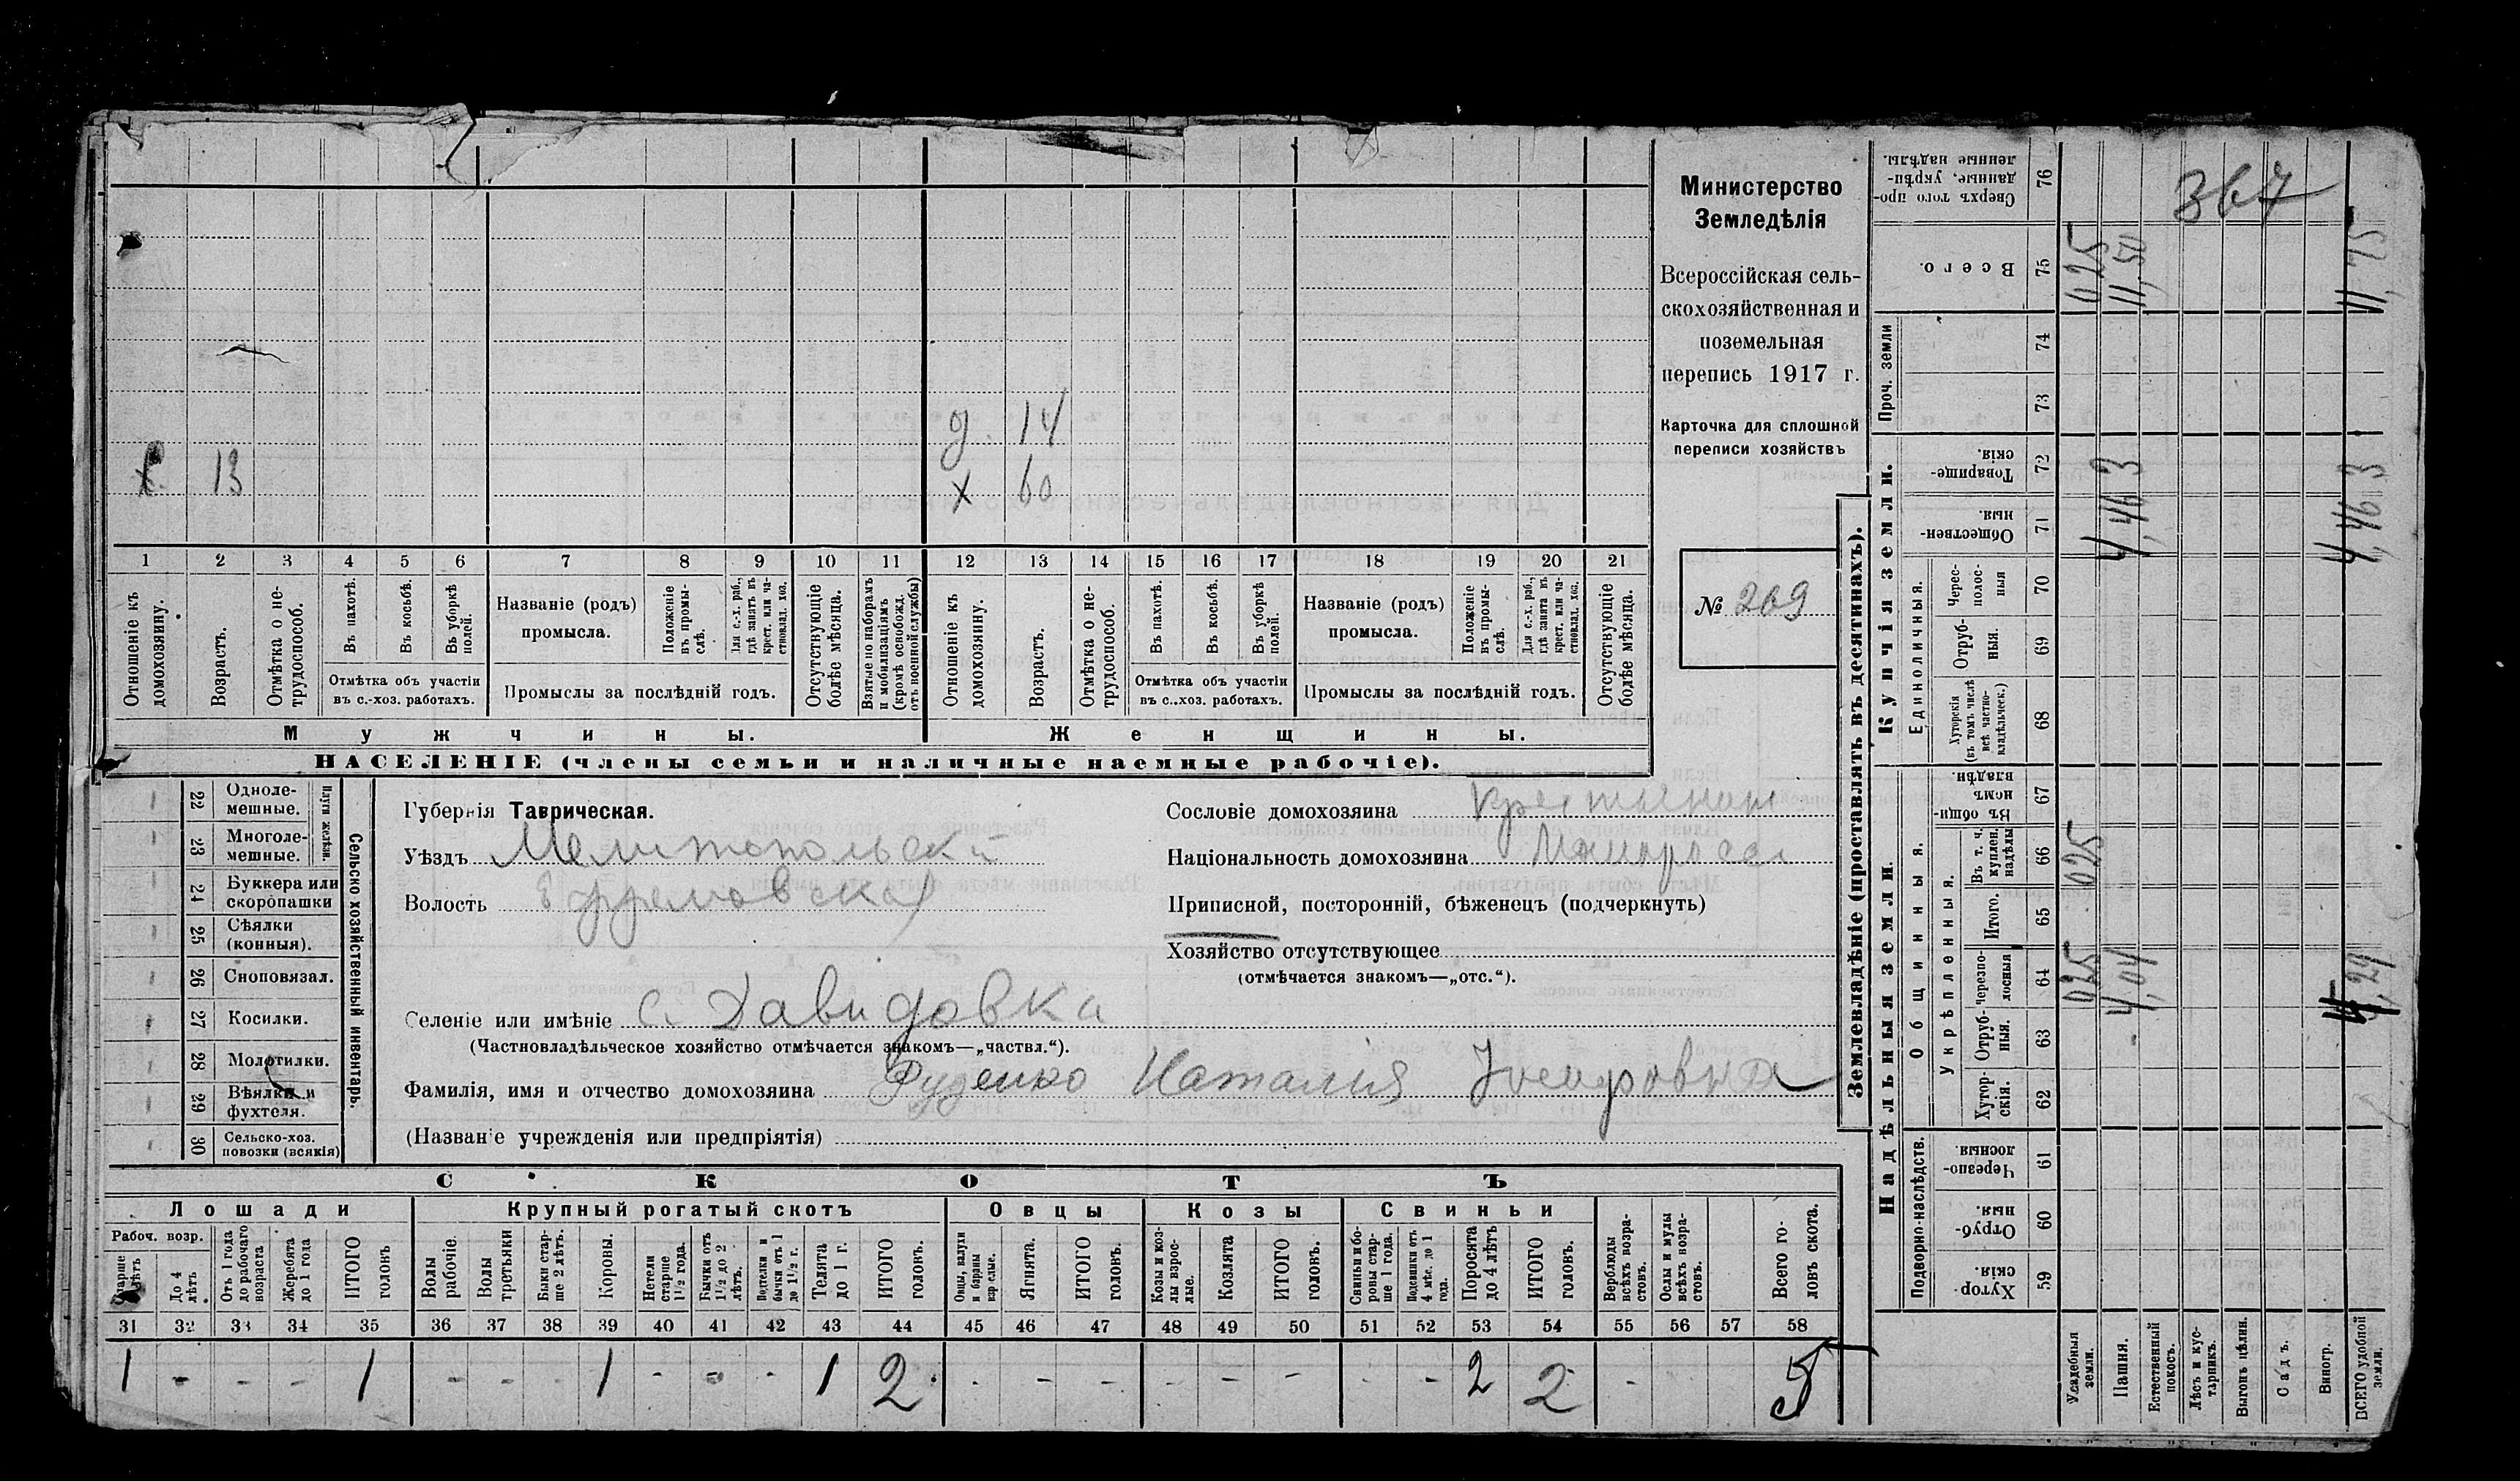 Министерство
Земледѣлія
Всероссійская сель-
скохозяйственная и
поземельная
перепись 1917 г.
Карточка для сплошной
переписи хозяйствъ
№ 269
367
д. 14
13
х 60
1 2 3 4 5 6 7 8 9 10 11 12 13 14 15 16 17 18 19 20 21
Отношеніе къ домохозяину.
Возрастъ.
Отмѣтка о не-трудоспособ.
Въ пахотѣ.
Въ косьбѣ.
Въ уборкѣ полей.
Отмѣтка объ участіи
въ с.-хоз. работахъ.
Названіе (родъ)
промысла.
Положеніе въ промы-слѣ.
Для с.-х. раб., гдѣ занятъ въ крест. или ча-стновлад. хоз.
Промыслы за послѣдній годъ.
Отсутствующіе болѣе мѣсяца.
Взятые по наборамъ и мобилизаціямъ (кромѣ освобожд. отъ военной службы)
Отношеніе къ домохозяину.
Возрастъ.
Отмѣтка о не-трудоспособ.
Въ пахотѣ.
Въ косьбѣ.
Въ уборкѣ полей.
Отмѣтка объ участіи
въ с.-хоз. работахъ.
Названіе (родъ)
промысла.
Положеніе въ промы-слѣ.
Для с.-х. раб., гдѣ занята въ крест. или ча-стновлад. хоз.
Промыслы за послѣдній годъ.
Отсутствующіе болѣе мѣсяца.
Мужчины. Женщины.
НАСЕЛЕНІЕ (члены семьи и наличные наемные рабочіе).
Сельско хозяйственный инвентарь.
Плуги желѣзн.
22 Одноле-мешные.
23 Многоле-мешные.
24 Буккера или скоропашки
25 Сѣялки (конныя).
26 Сноповязал.
27 Косилки.
28 Молотилки.
29 Вѣялки и фухтеля.
30 Сельско-хоз. повозки (всякія)
Губернія Таврическая.
Уѣздъ Мелитопольский
Волость Ефремовская
Селеніе или имѣніе с. Давидовка
(Частновладѣльческое хозяйство отмѣчается знакомъ—„частвл.“).
Фамилія, имя и отчество домохозяина Руденко Наталия
(Названіе учрежденія или предпріятія)
Сословіе домохозяина крестьянин
Національность домохозяина Малоросса
Приписной, посторонній, бѣженецъ (подчеркнуть)
Хозяйство отсутствующее
(отмѣчается знакомъ—„отс.“).
СКОТЪ
Лошади Крупный рогатый скотъ Овцы Козы Свиньи
Рабоч. возр.
Старше 4 лѣтъ
До 4 лѣтъ
Отъ 1 года до рабочаго возраста
Жеребята до 1 года
ИТОГО головъ
Волы рабочіе.
Волы третьяки
Быки стар-ше 2 лѣтъ.
Коровы.
Нетели старше 1½ года.
Бычки отъ 1½ до 2 лѣтъ.
Подтелки и бычки отъ 1 до 1½ г.
Телята до 1 г.
ИТОГО головъ.
Овцы, валухи и бараны взрослые.
Ягнята.
ИТОГО головъ.
Козы и коз-лы взрос-лые.
Козлята
ИТОГО головъ.
Свиньи и бо-ровы стар-ше 1 года.
Подсвинки отъ 4 мѣс. до 1 года.
Поросята до 4 лѣтъ
ИТОГО головъ.
Верблюды всѣхъ возра-стовъ.
Ослы и мулы всѣхъ возра-стовъ.
Всего го-ловъ скота.
31 32 33 34 35 36 37 38 39 40 41 42 43 44 45 46 47 48 49 50 51 52 53 54 55 56 57 58
1 - - - 1 - - - 1 - - - 1 2 - - - - - - - - 2 2 - 5
Землевладѣніе (проставлять въ десятинахъ).
Надѣльныя земли. Купчія земли. Проч. земли
Подворно-наслѣдств.
Общинныя.
Укрѣпленныя.
Единоличныя.
59 Хутор-скія.
60 Отруб-ныя.
61 Черезпо-лосныя
62 Хутор-скія.
63 Отруб-ныя.
64 Черезпо-лосныя
65 Итого.
66 Въ т. ч. куплен. надѣлы
67 Въ общин-номъ владѣн.
68 Хуторскія (въ томъ числѣ всѣ частно-владѣльческ.)
69 Отруб-ныя.
70 Черес-полос-ныя
71 Обществен-ныя.
72 Товарище-скія.
73
74
75 Всего.
76 Сверхъ того про-данные, укрѣп-ленные надѣлы.
Усадебныя земли.
025 025 025
Пашня.
4,04 4,46 3 11,50
Естественный покосъ.
Лѣсъ и кус-тарникъ.
Выгонъ цѣлин.
Садъ.
Виногр.
ВСЕГО удобной земли.
4,29 4,46 3 11,75